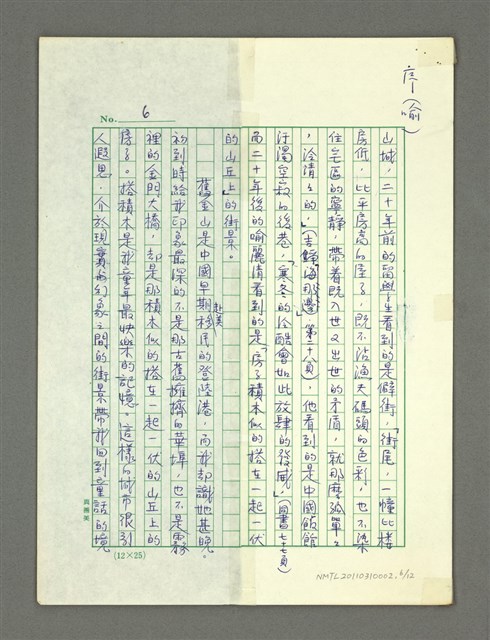 序(喻)
No. 6
山城,二十年前的留學生看到的是僻街,「街尾,一幢比樓
房低,比平房高的屋子,既不沾漁夫碼頭的色彩,也不染
住宅區的寧靜,帶着既入世又出世的矛盾,就那麼孤單單
,冷清清的」(吉錚海那邊第二十八頁),他看到的是中國飯館
汙濁空寂的後巷,「寒冬的冷酷會如此放肆的發威」(同書七十七頁)
而二十年後的喻麗清看到的是「房子積木似的搭在一起一伏
的山丘上」的街景。
舊金山是中國早期赴美移民的登陸港,而我却識她甚晚。
初到時給我印象最深的不是那古舊擁擠的華埠,也不是霧
裡的金門大橋,却是那積木似的搭在一起一伏的山丘上的
房子。搭積木是我童年最快樂的記憶。這樣的城市很引
人遐思,介於現實與幻象之間的街景帶我回到童話的境
(12×25)
NMTL20110310002, 6/12